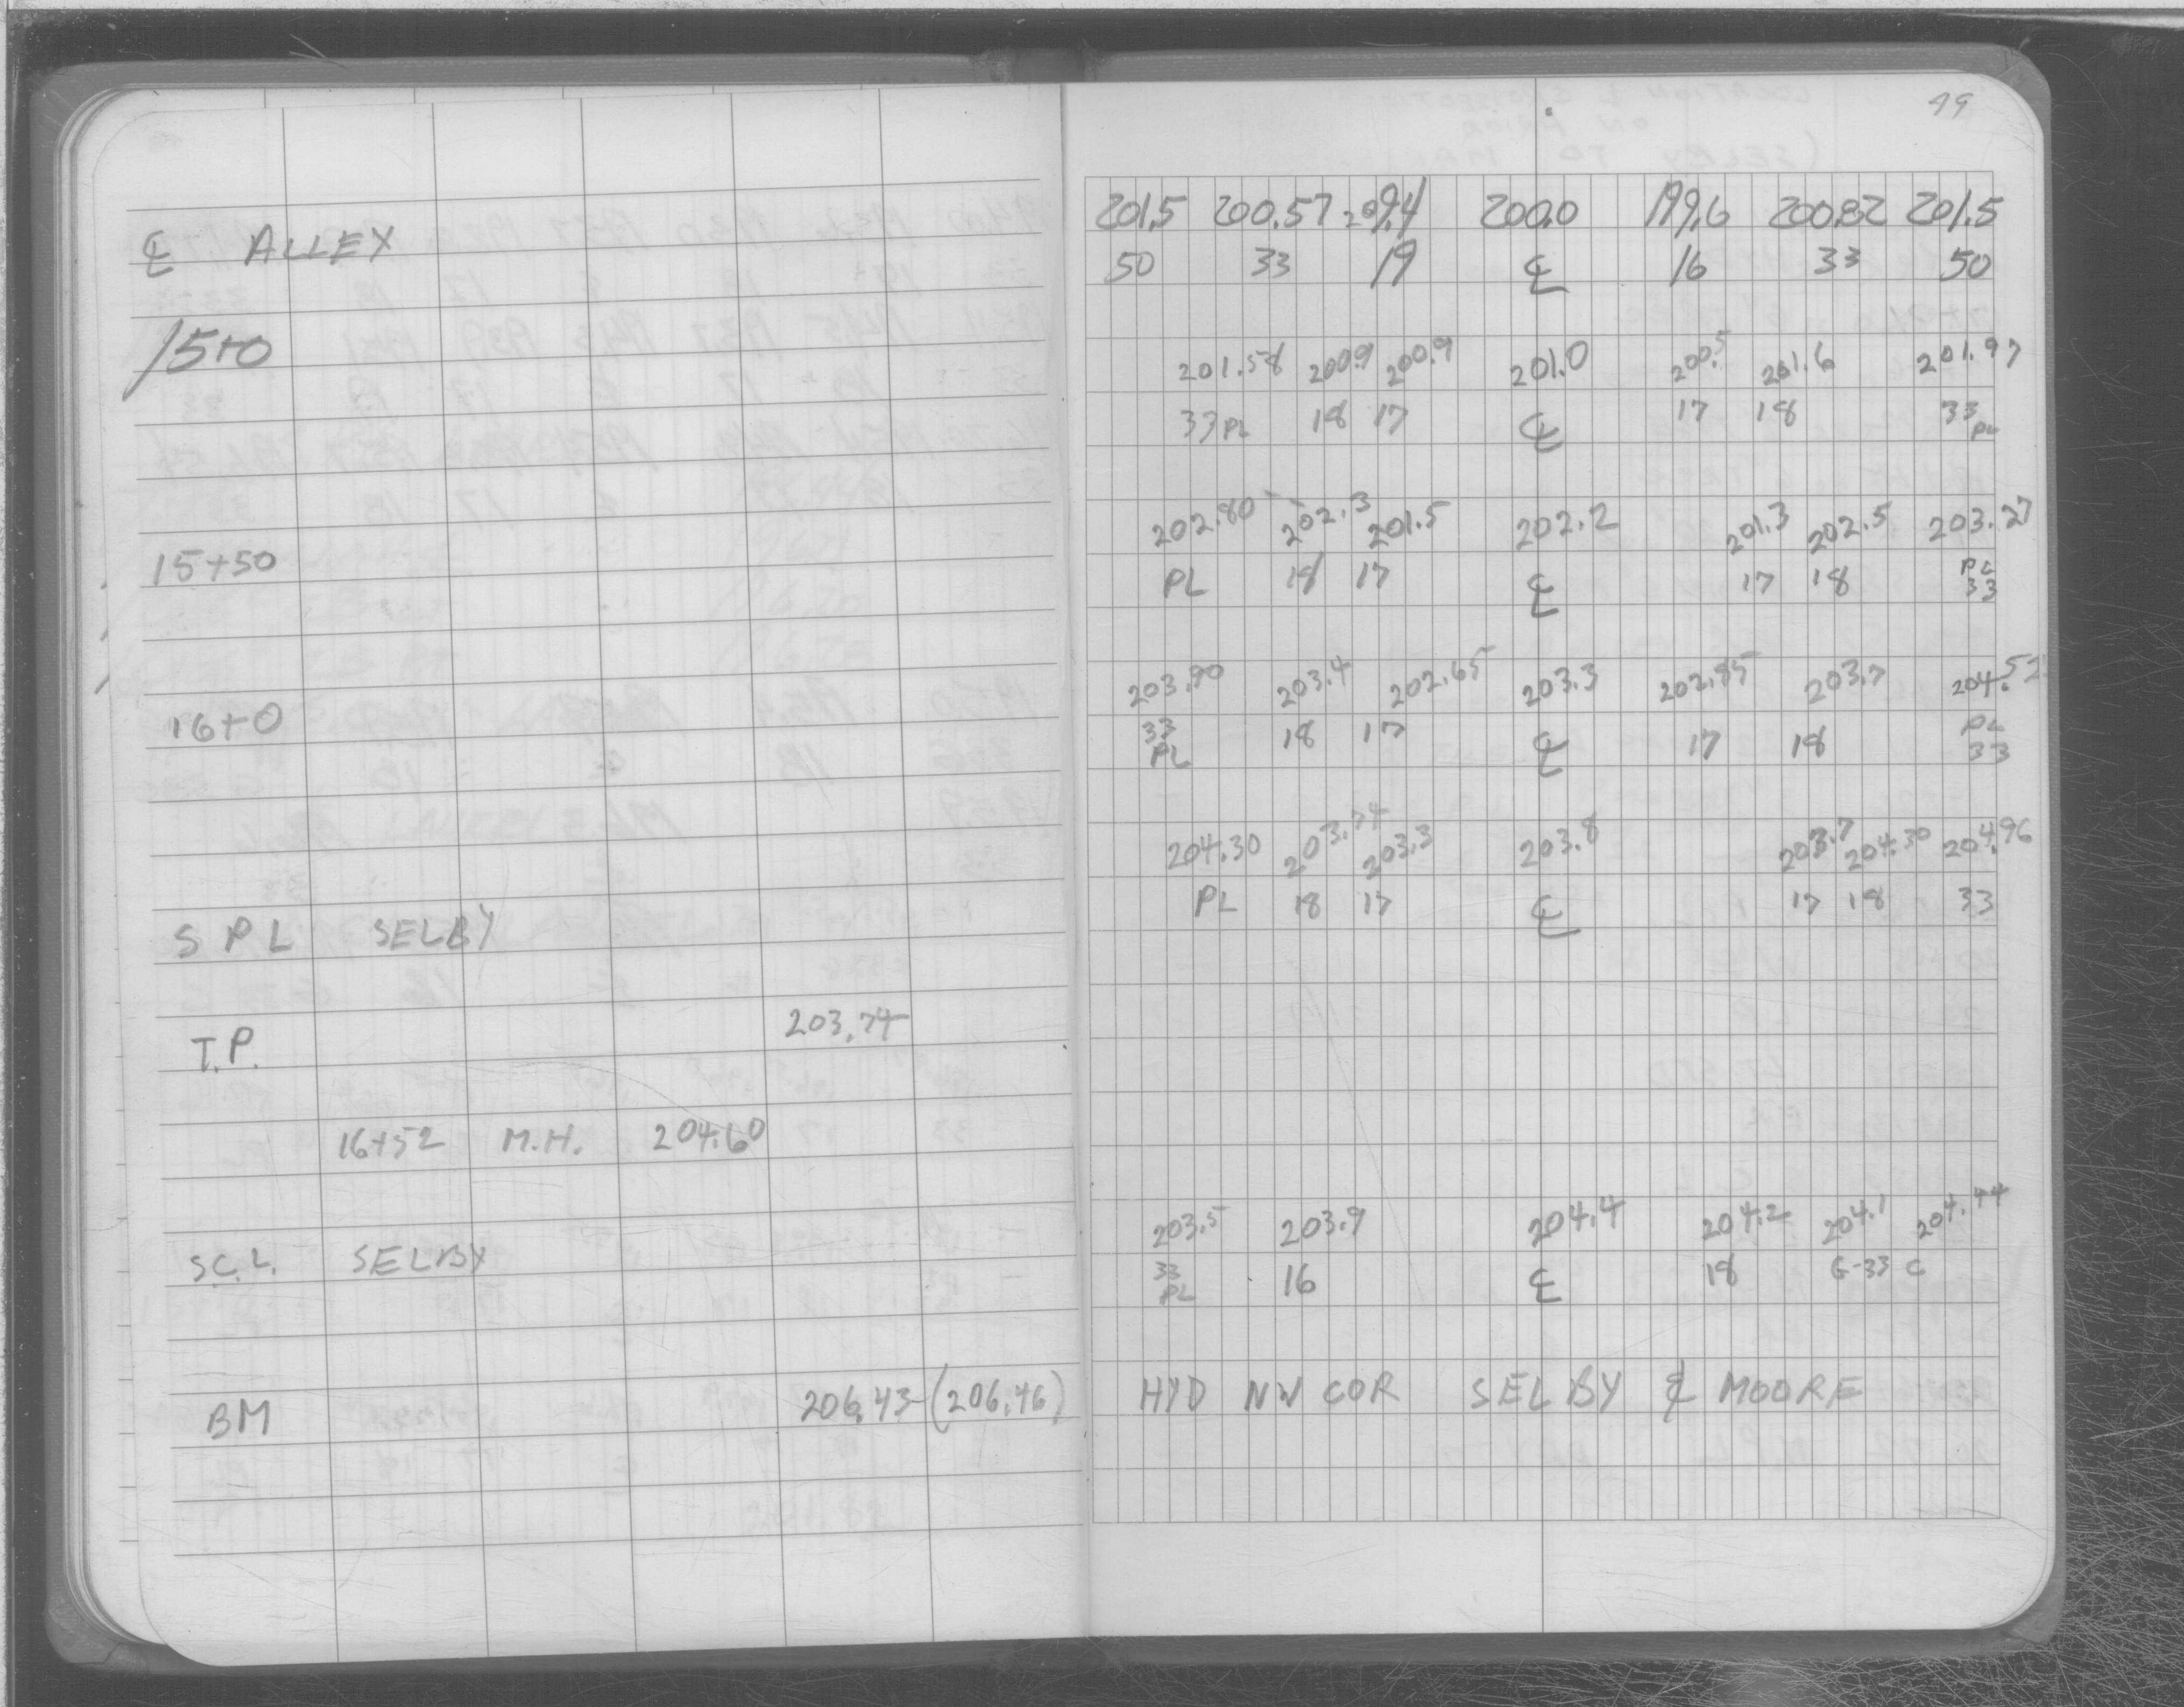 ℄ ALLEY
15+0
15+50
16+0
S P L SELBY
T.P. 203.74
16+52 M.H. 204.60
S.C.L. SELBY
BM 206.43-(206.46)
201.5 200.57 200.0 199.6 200.82 201.5
50 33 19 ℄ 16 33 50
201.58 200.9 200.9 201.0 200.5 201.6 201.97
33 PL 18 17 ℄ 17 18 33 PL
202.80 202.3 201.5 202.2 201.3 202.5 203.27
PL 18 17 ℄ 17 18 PL 33
203.90 203.4 202.65 203.3 202.85 203.7 204.52
33 PL 18 17 ℄ 17 18 PL 33
204.30 203.74 203.3 203.8 203.7 204.30 204.96
PL 18 17 ℄ 17 18 33
203.5 203.9 204.4 204.2 204.1 204.44
33 PL 16 ℄ 18 G-33 C
HYD NW COR SELBY & MOORE